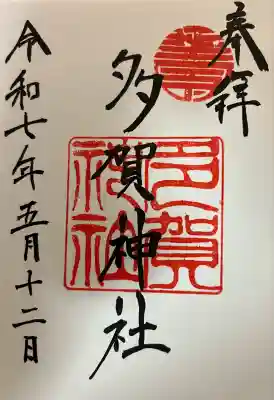 奉拝
多賀神社
多賀神社
令和七年五月十二日